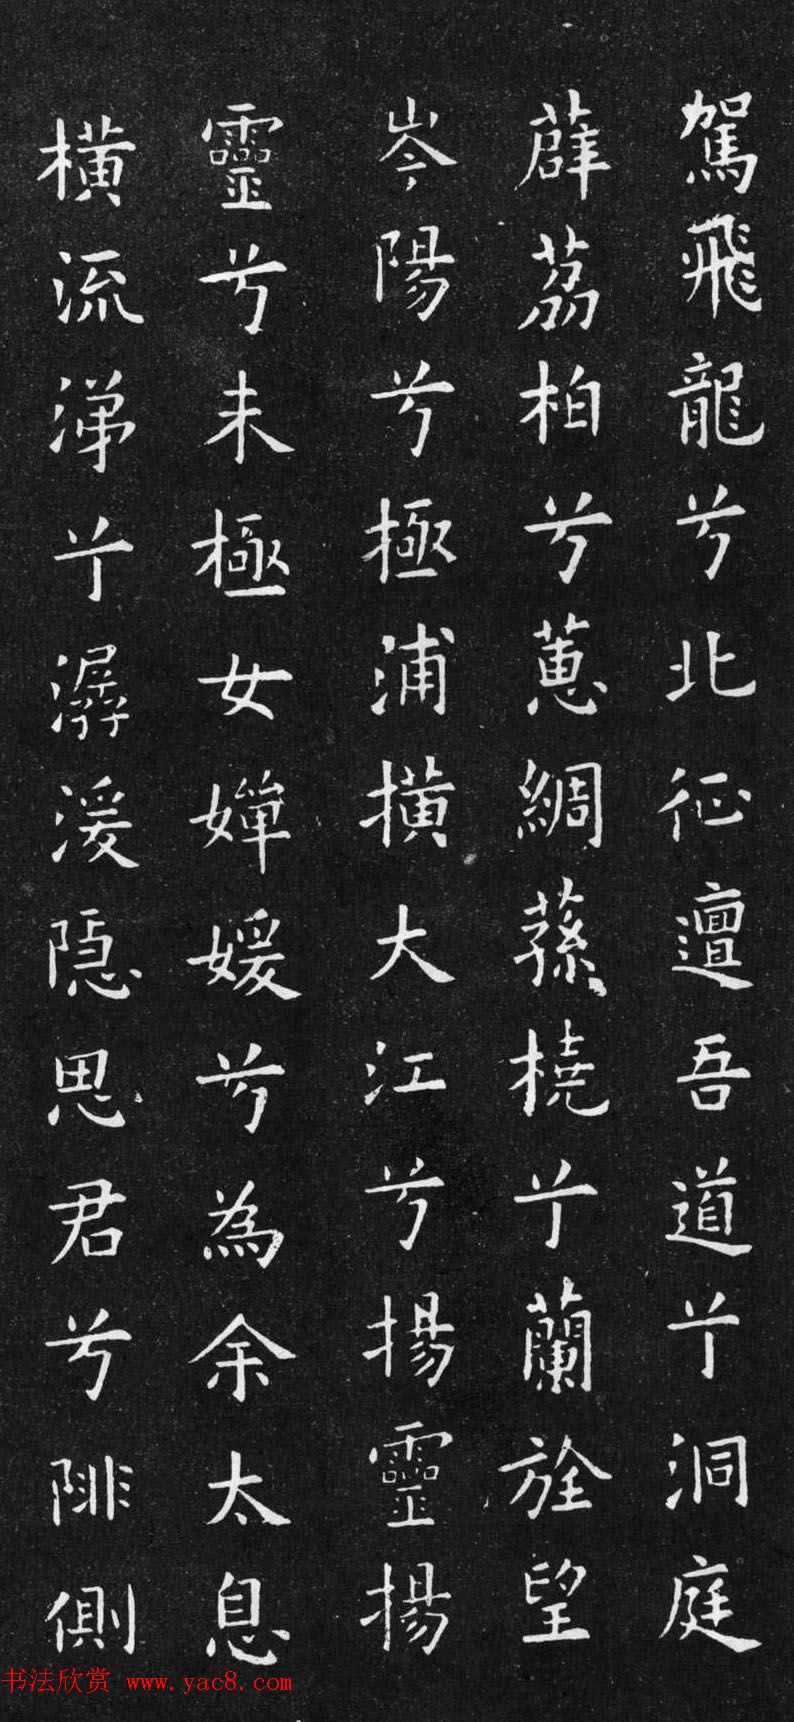 駕飛龍兮北征邅吾道兮洞庭
薜荔柏兮蕙綢蓀橈兮蘭旌望
岑陽兮極浦橫大江兮揚靈揚
靈兮未極女嬋媛兮為余太息
橫流涕兮潺湲隱思君兮陫側
书法欣赏 www.yac8.com